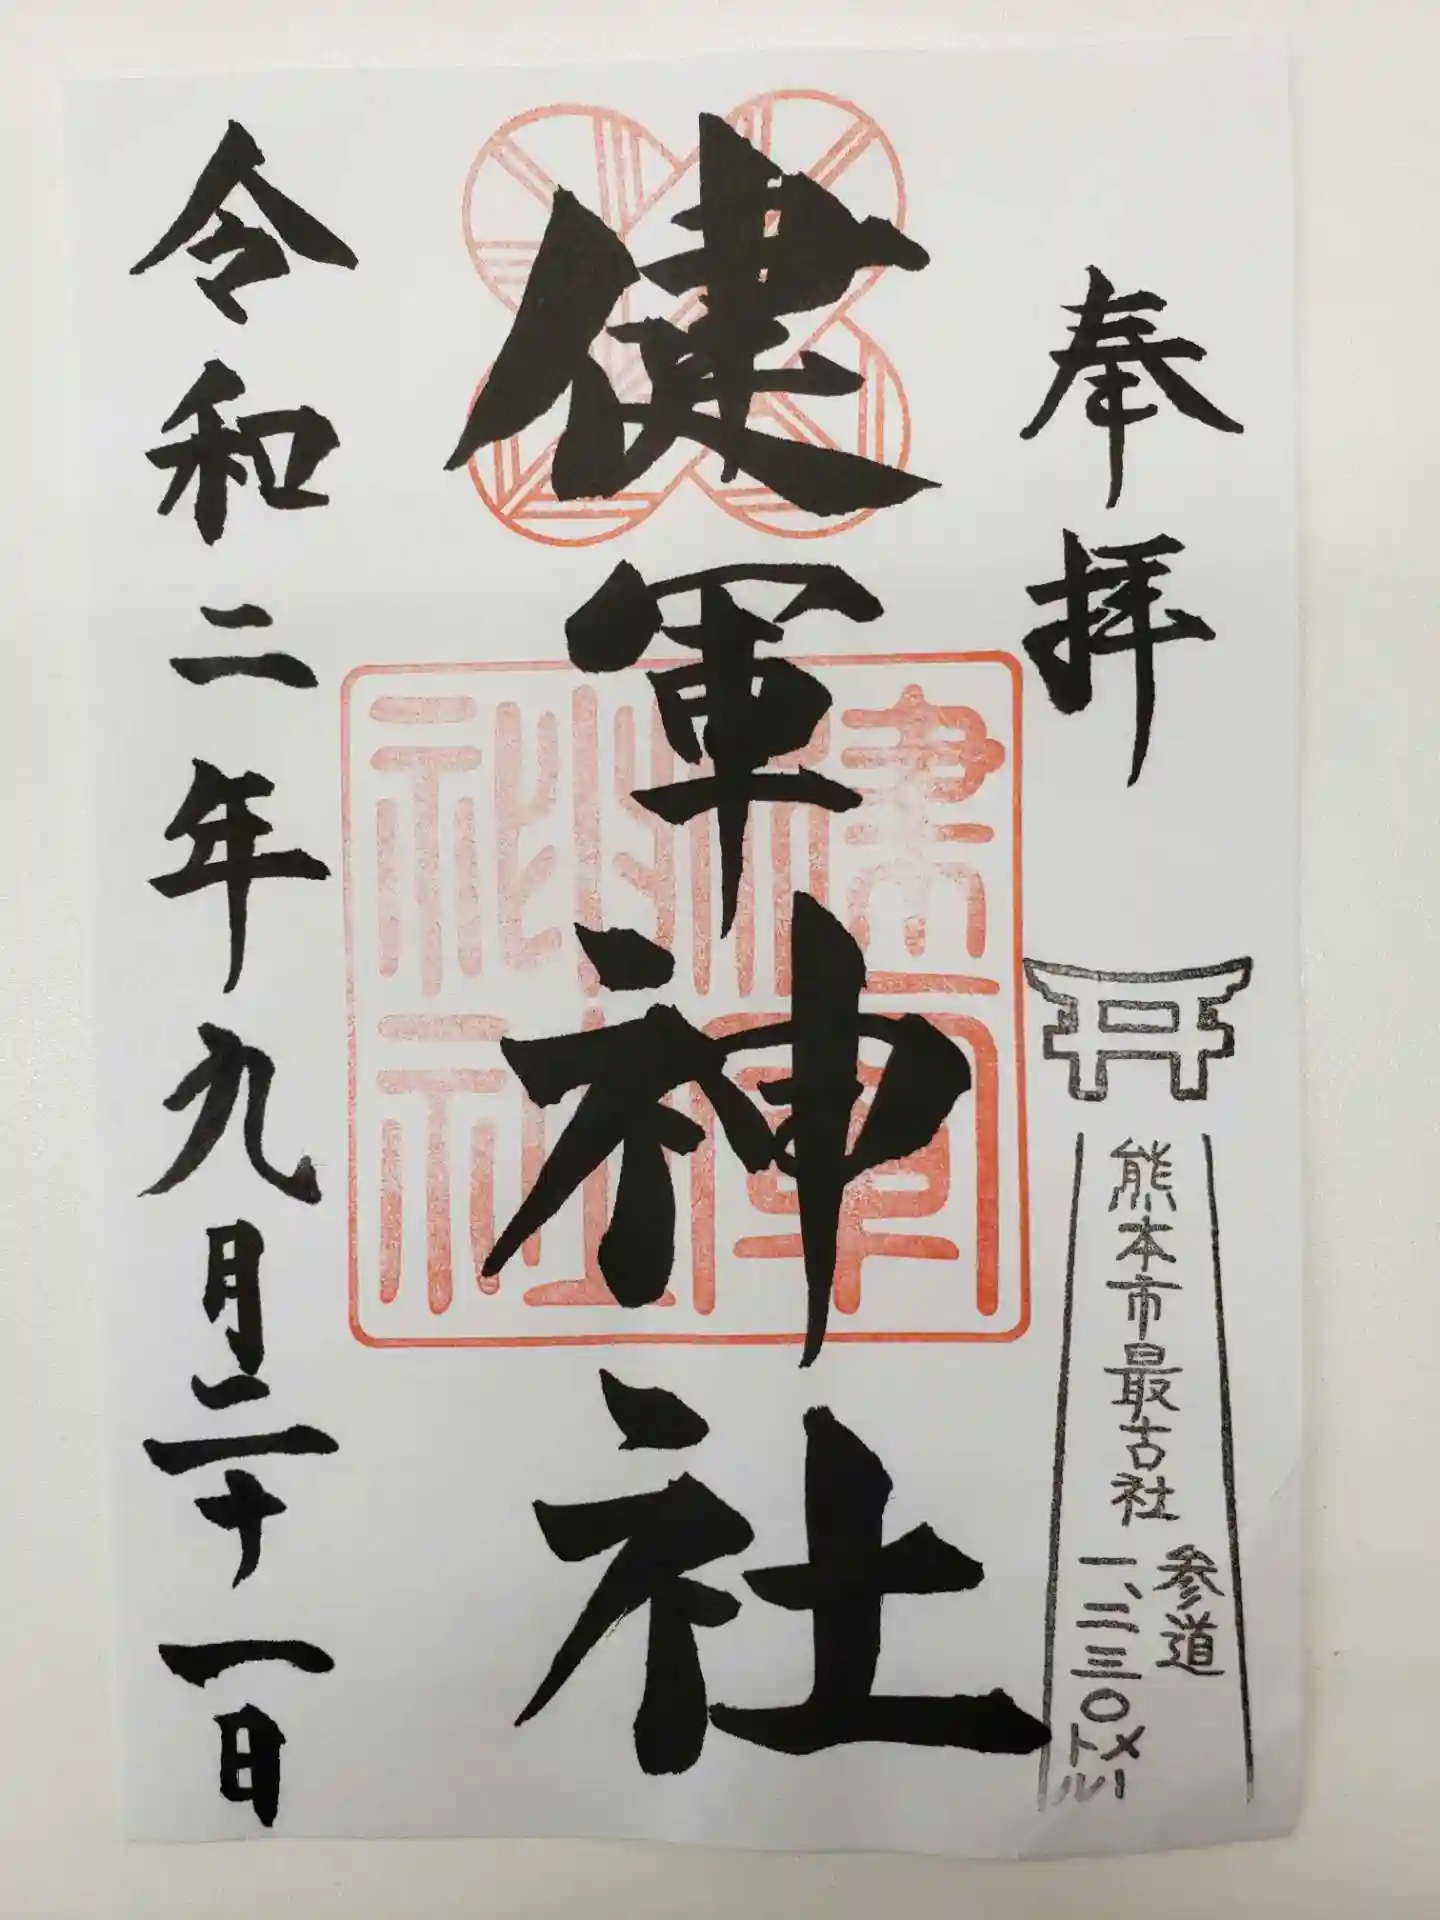 奉拝
熊本市最古社
参道
一、二三〇メートル
健軍神社
健軍
神社
令和二年九月二十一日